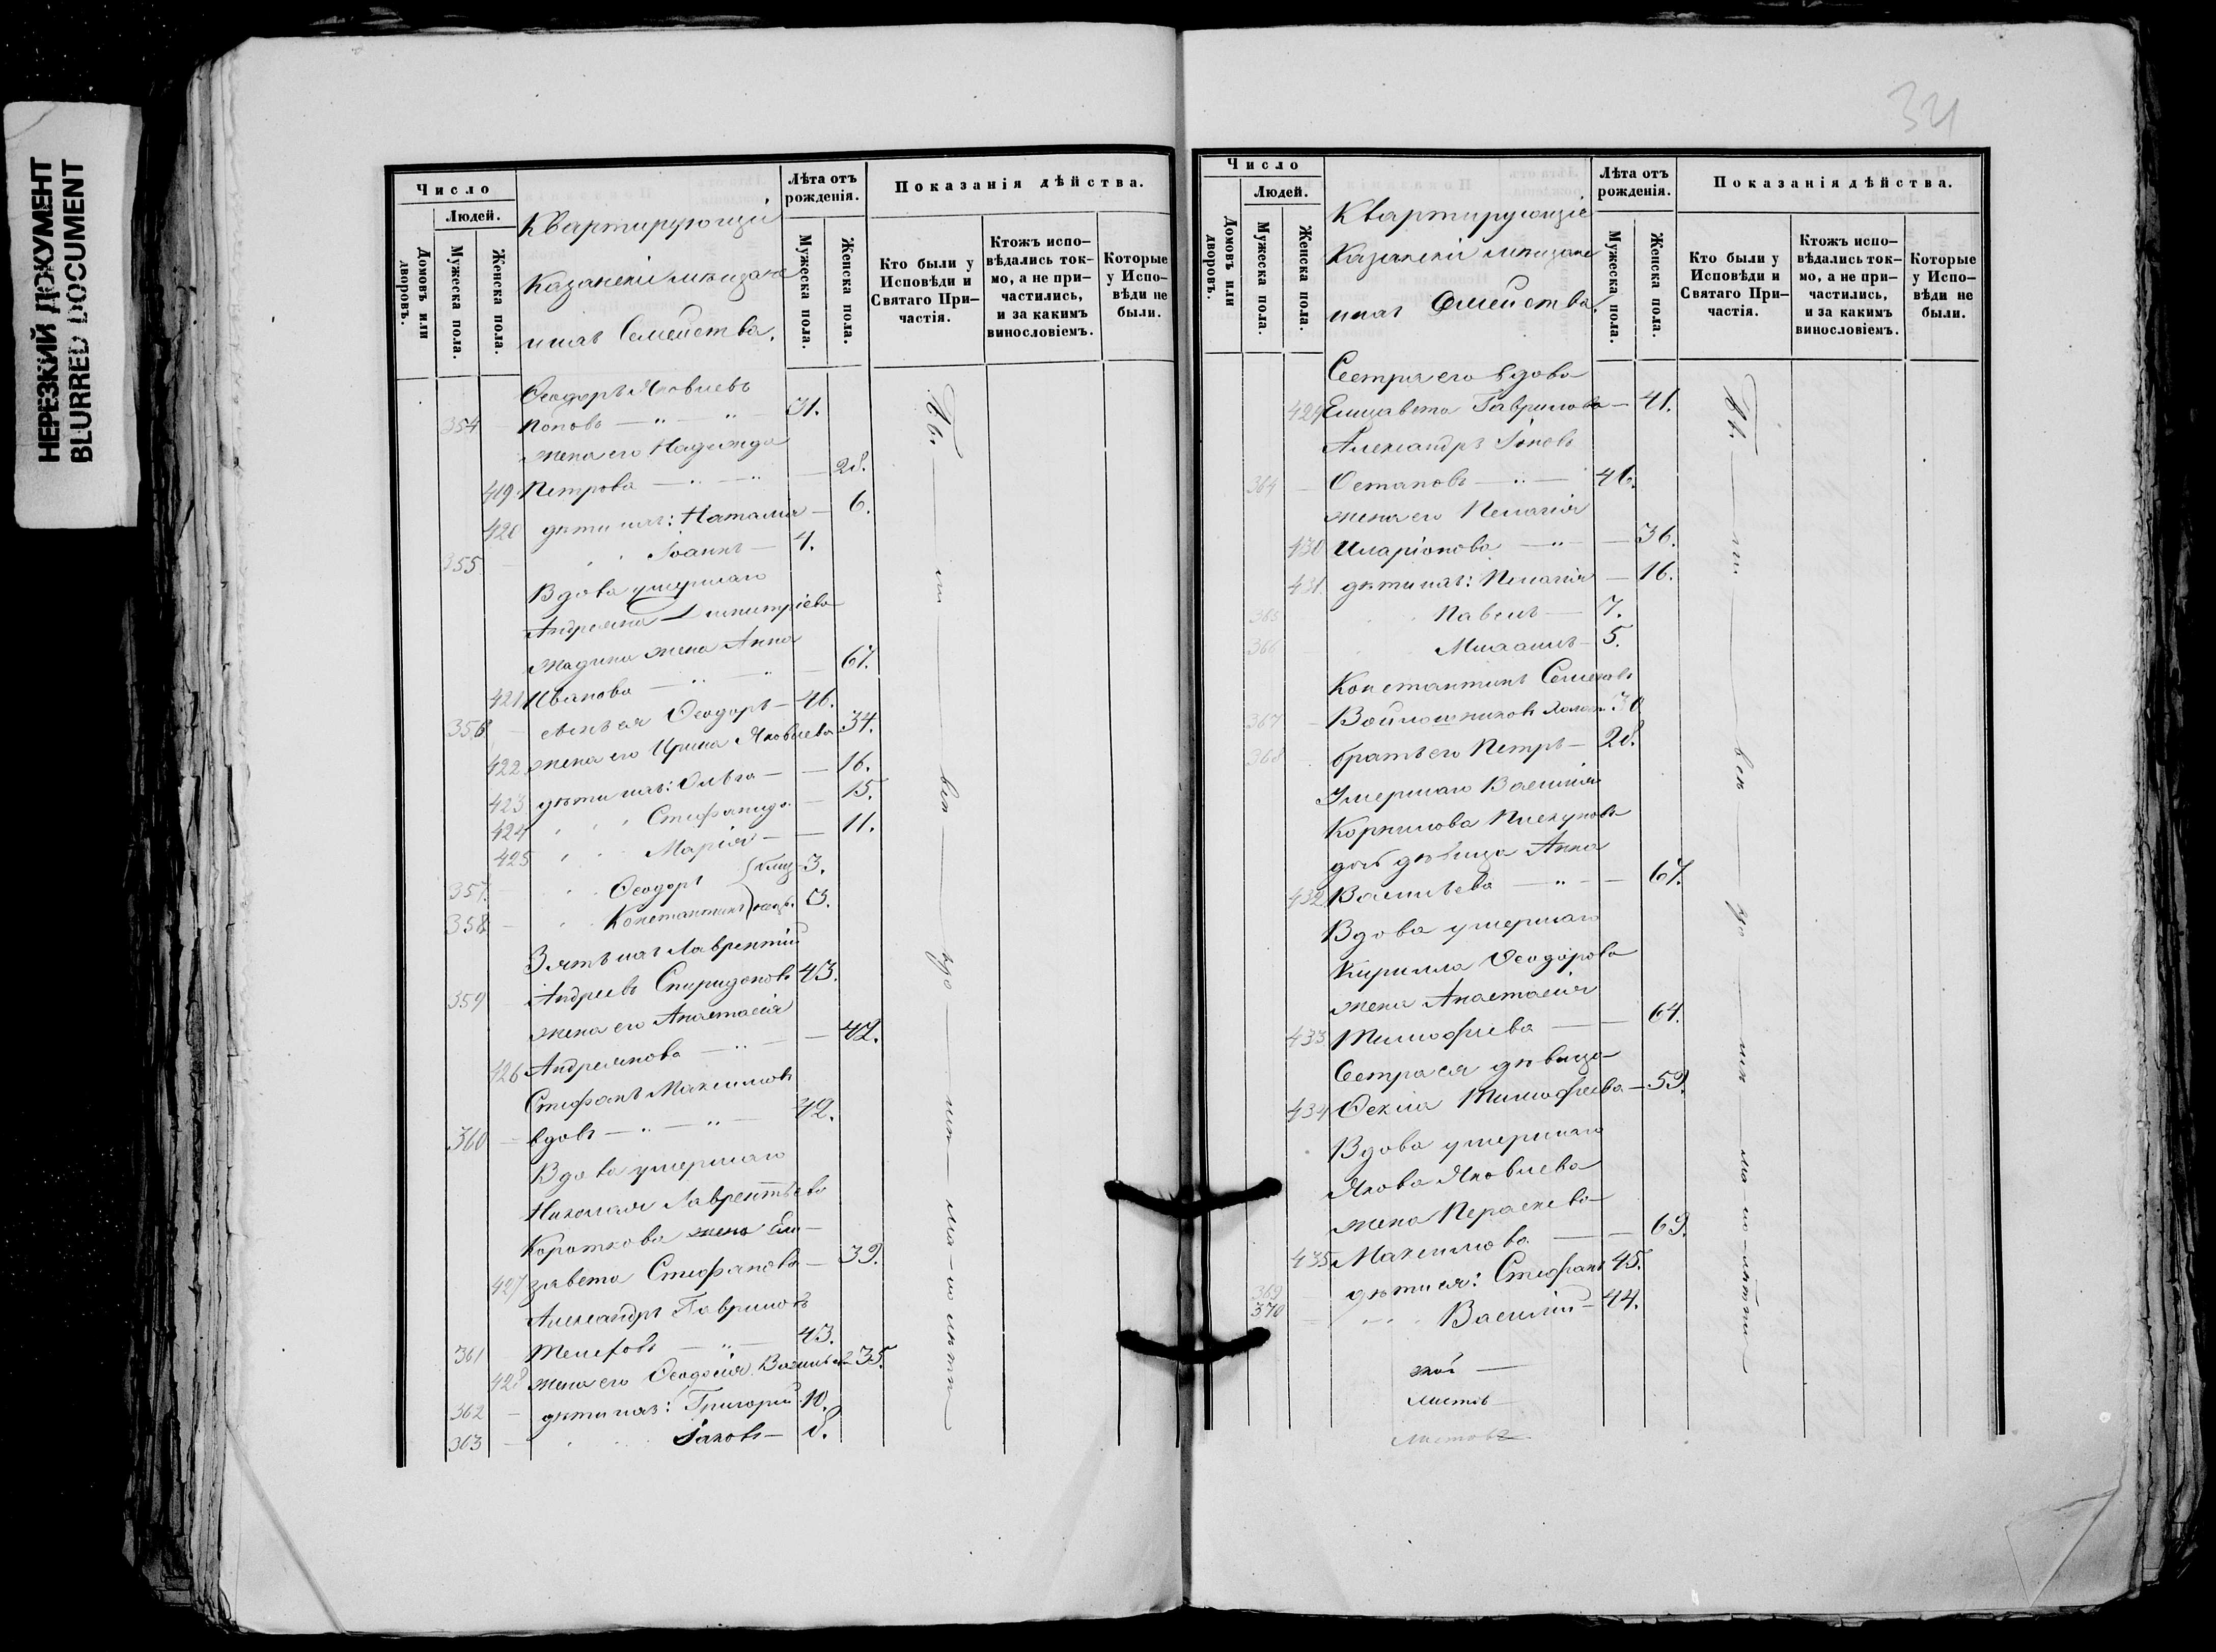 НЕРЕЗКИЙ ДОКУМЕНТ
BLURRED DOCUMENT
Число
Людей.
Домовъ или дворовъ.
Мужеска пола.
Женска пола.
Квартирующіи
Казанскіи мѣщане
и ихъ Семейства.
Лѣта отъ рожденія.
Мужеска пола.
Женска пола.
Показанія дѣйства.
Кто были у Исповѣди и Святаго При-частія.
Ктожъ испо-вѣдались ток-мо, а не при-частились, и за какимъ винословіемъ.
Которые у Испо-вѣди не были.
Ѳеодоръ Яковлевъ
354 Поповъ — " — " — 31.
жена его Надежда
419 Петрова — " — " — 28.
420 дѣти ихъ: Наталія — 6.
355 " " Іоаннъ — 4.
Вдова умершаго
Андреяна Димитріева
жена Анна
421 Иванова — " — " — 67.
356 сынъ ея Ѳеодоръ — 46.
422 жена его Ирина Яковлева 34.
423 дѣти ихъ: Ольга — 16.
424 " " Стефанида — 15.
425 " " Марія — 11.
357 " " Ѳеодоръ 3.
358 " " Константинъ 3.
Зять ихъ Лаврентій
359 Андреевъ Спиридоновъ 43.
жена его Анастасія
426 Андреянова — " — 42.
Стефанъ Максимовъ
360 вдовъ — " — " — 42.
Вдова умершаго
Николая Лаврентьева
Короткова жена Ели-
427 завета Стефанова — 39.
Александръ Гавриловъ
361 — " — 43.
428 жена его Ѳеодосія Васильева 35.
362 дѣти ихъ: Григорій 10.
363 " " Іаковъ — 8.
Вс. — ѣ — вся — — — ма — ло — лѣтни
34
Число
Людей.
Домовъ или дворовъ.
Мужеска пола.
Женска пола.
Квартирующіе
Казанскіи мѣщане
и ихъ Семейства.
Лѣта отъ рожденія.
Мужеска пола.
Женска пола.
Показанія дѣйства.
Кто были у Исповѣди и Святаго При-частія.
Ктожъ испо-вѣдались ток-мо, а не при-частились, и за какимъ винословіемъ.
Которые у Испо-вѣди не были.
Сестра его вдова
429 Елизавета Гаврилова — 41.
Александръ Іоновъ
364 Остановъ — " — 46.
жена его Пелагія
430 Иларіонова — " — 36.
431 дѣти ихъ: Пелагія — 16.
365 " " Павелъ — 7.
366 " " Михаилъ — 5.
Константинъ Семеновъ
367 Войлошниковъ холост. 30
368 братъ его Петръ — 28.
Умершаго Василія
Корнилова
дочь дѣвица Анна
432 Васильева — " — 67.
Вдова умершаго
Кирилла Ѳеодорова
жена Анастасія
433 Тимофѣева — 64.
Сестра ея дѣвица
434 Ѳекла Тимофѣева — 59.
Вдова умершаго
Якова Яковлева
жена Параскева
435 Максимова — 69.
369 дѣти ея: Стефанъ 45.
370 " " Василій — 44.